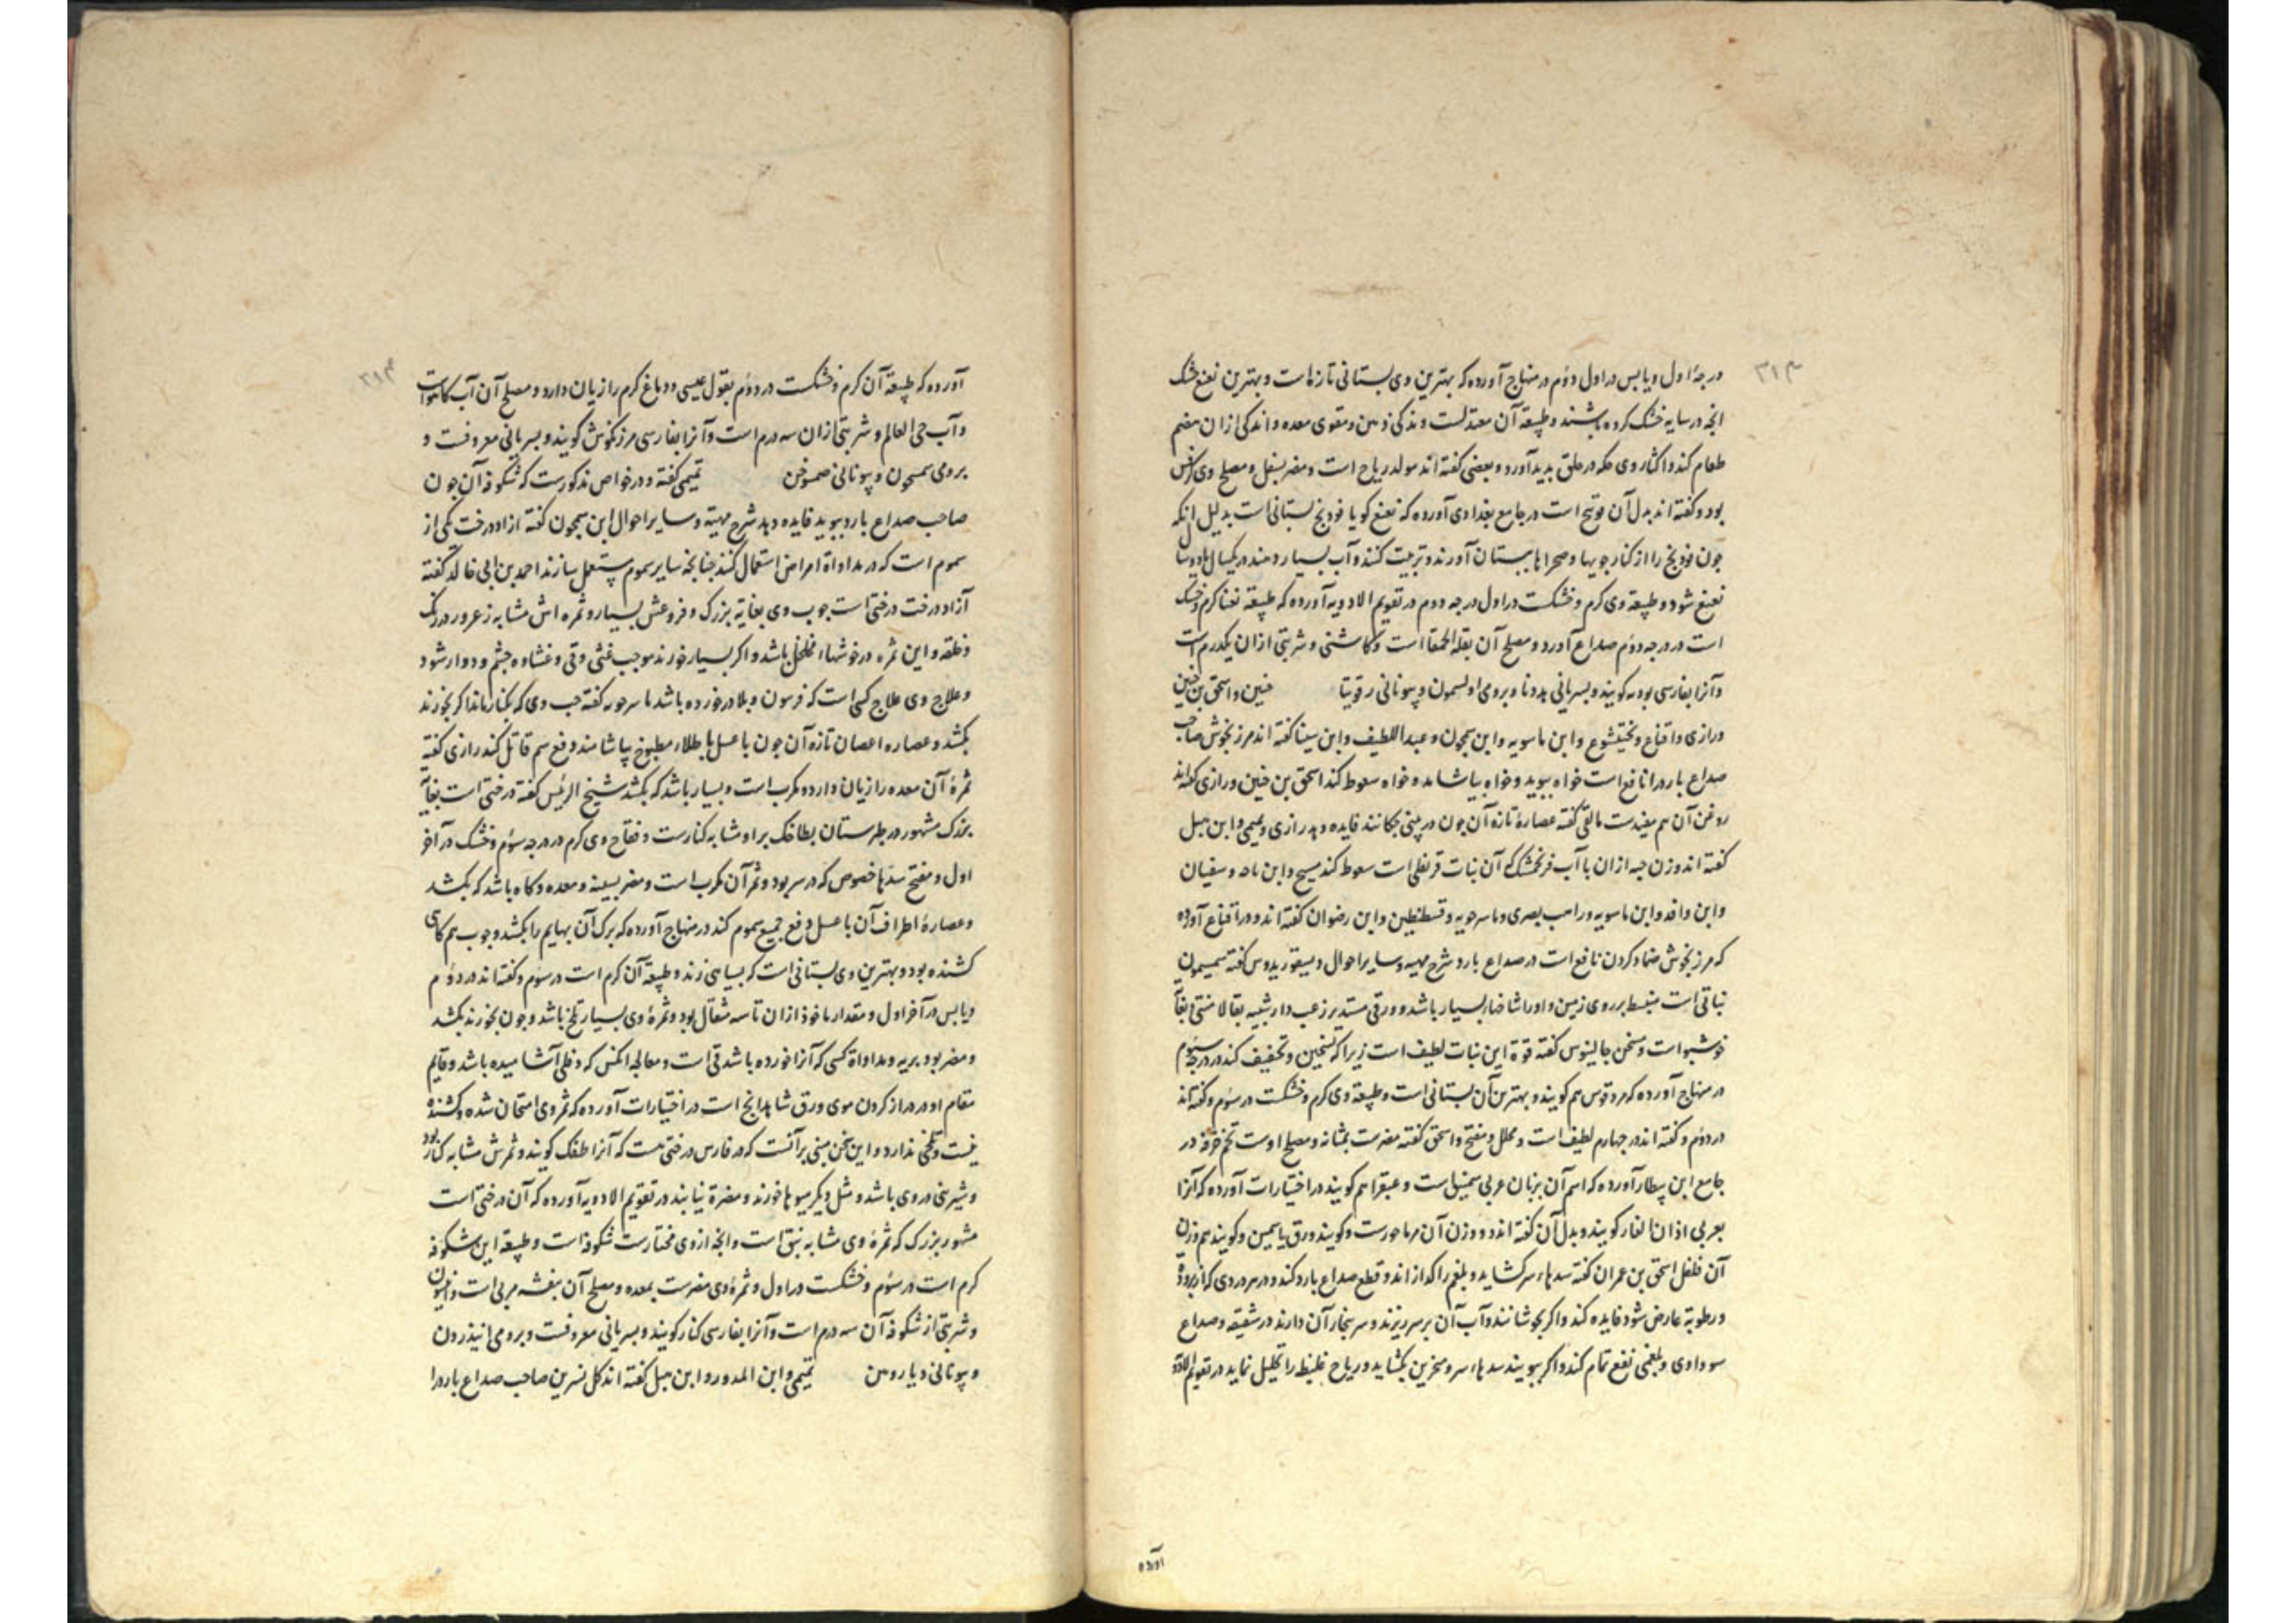 ۳۱۳
درجهٔ اول و یابس در اول دوم در منهاج آورده که بهترین وی بستانی تازه است و بهترین نعنع خشک
انچه در سایه خشک کرده باشند و طبیعة آن معتدلست و ندکی و من و مقوی معده و اندکی ازان مضم
طعام کند و اکثار وی حکه در حلق بدید آورد و بعضی گفته اند مولد ریاح است و مضر بسفل و مصلح وی کرفس
بود و گفته اند بدل آن فوتنج است در جامع بغدادی آورده که نعنع کویا فودنج بستانی است بدلیل انکه
جون فودنج را از کنار جویها و صحراها ببستان آورند و تربیت کنند و آب بسیار دهند در یکسال یا دو سال
نعنع شود و طبیعة وی کرم و خشکست در اول درجه دوم در تقویم الادویه آورده که طبیعة نعناع کرم و خشک
است در درجه دوم صداع آورد و مصلح آن بقلة الحمقا است و کاسنی و شربتی ازان یکدرم است
وآنرا بفارسی بودنه کویند و بسریانی و برومی و بیونانی حنین و اسحق بن حنین
و رازی و اقناع و بختیشوع و ابن ماسویه و ابن سمجون و عبد اللطیف و ابن سینا گفته اند مرزنجوش صاحب
صداع بارد را نافع است خواه ببوید و خواه بیاشامد و خواه سعوط کند اسحق بن حنین و رازی گفته اند
روغن آن هم مفیدست مالقی گفته عصارهٔ تازه آن جون در بینی چکانند فایده دهد رازی و تمیمی و ابن هبل
گفته اند وزن حبه ازان با آب فرنجمشک که آن نبات قرنفلی است سعوط کند مسیح و ابن ماسه و سفیان
و ابن وافد و ابن ماسویه و راهب بصری و ماسرجویه و قسطنطین و ابن رضوان گفته اند و در اقناع آورده
که مرزنجوش ضماد کردن نافع است در صداع بارد شرح مهیته و سایر احوال دیسقوریدوس گفته
نباتی است منبسط بر روی زمین و او را شاخها بسیار باشد و ورقی مستدیر زغب دار شبیه بقالامنتی و بغایة
خوشبو است و سخن جالینوس گفته قوة این نبات لطیف است زیرا که تسخین و تجفیف کند در درجه سوم
در منهاج آورده که مردقوس هم کویند و بهترین آن بستانی است و طبیعة وی کرم و خشکست در سوم و گفته اند
در دوم و گفته اند در چهارم لطیف است و محلل و مفتح و اسحق گفته مضرست بمثانه و مصلح اوست تخم خرفه در
جامع ابن بیطار آورده که اسم آن بزبان عربی سمسق است و عبقر هم کویند در اختیارات آورده که آنرا
بعربی اذان الفار کویند و بدل آن گفته اند دو وزن آن مرماحورست و کویند ورق یاسمین و کویند هم وزن
آن فلفل اسحق بن عمران گفته سدهاء سر کشاید و بلغم را کدازاند و قطع صداع بارد کند و در هر دردی که از برودة
و رطوبة عارض شود فایده کند و اکر بجوشانند و آب آن بر سر ریزند و سر ببخار آن دارند در شقیقه و صداع
سوداوی و بلغمی نفع تمام کند و اکر ببویند سدهاء سر و منخرین بکشاید و ریاح غلیظ را تحلیل نماید در تقویم الادویه
آورده
۳۱۴
آورده که طبیعة آن کرم و خشکست در دوم بقول عیسی و دماغ کرم را زیان دارد و مصلح آن آب کاسنی است
و آب حی العالم و شربتی ازان سه درم است و آنرا بفارسی مرزنکوش کویند و بسریانی معروفست و
برومی سمسحون و بیونانی تمیمی گفته و در خواص مذکورست که شکوفه آن جون
صاحب صداع بارد ببوید فایده دهد شرح مهیته و سایر احوال ابن سمجون گفته ازاددرخت یکی از
سموم است که در مداواة امراض استعمال کنند چنانچه سایر سموم مستعمل سازند احمد بن ابی خالد گفته
آزاد درخت درختی است جوب وی بغایة بزرک و فروعش بسیار و ثمره اش مشابه زعرور در رنک
و خلقه و این ثمره در خوشهاء مخلخل باشد و اکر بسیار خورند موجب غثی و قی و غشاوه چشم و دوار شود
و علاج وی علاج کسی است که فرسون و بلادر خورده باشد ماسرجویه گفته حب وی که بکنار ماند اکر بخورند
بکشد و عصاره اغصان تازه آن جون با عسل یا طلاء مطبوخ بیاشامند دفع سم قاتل کند رازی گفته
ثمرهٔ آن معده را زیان دارد و مکرب است و بسیار باشد که بکشد شیخ الرئیس گفته درختی است بغایة
بزرک مشهور در طبرستان بطاخک بر او مشابه کنارست و فقاح وی کرم در درجه سوم و خشک در آخر
اول و مفتح سدها خصوص که در سر بود و ثمر آن مکرب است و مضر بسینه و معده و کاه باشد که بکشد
و عصارهٔ اطراف آن با عسل دفع جمیع سموم کند در منهاج آورده که برک آن بهایم را بکشد و جوب هم کاهی
کشنده بود و بهترین وی بستانی است که بسیاهی زند و طبیعة آن کرم است در سوم و گفته اند در دوم
و یابس در آخر اول و مقدار ماخوذ ازان تا سه مثقال بود و ثمرهٔ وی بسیار تلخ باشد و جون بخورند بکشد
و مضر بود بریه و مداواة کسی که آنرا خورده باشد قی است و معالجه انکس که دفلی آشامیده باشد و قایم
مقام او در دراز کردن موی ورق شاهدانج است در اختیارات آورده که ثمر وی امتحان شده و کشنده
نیست و تلخی ندارد و این سخن مبنی برآنست که در فارس درختی هست که آنرا طفک کویند و ثمرش مشابه کنار بود
و شیرینی در وی باشد و مثل دیکر میوها خورند و مضرة نیابند در تقویم الادویه آورده که آن درختی است
مشهور بزرک که ثمرهٔ وی مشابه نبق است و انچه از وی مختارست شکوفه است و طبیعة این شکوفه
کرم است در سوم و خشکست در اول و ثمرهٔ وی مضرست بمعده و مصلح آن بنفشه مربی است و افتیمون
و شربتی از شکوفه آن سه درم است و آنرا بفارسی کنار کویند و بسریانی معروفست و برومی
و بیونانی تمیمی و ابن المدور و ابن هبل گفته اند کل نسرین صاحب صداع بارد را